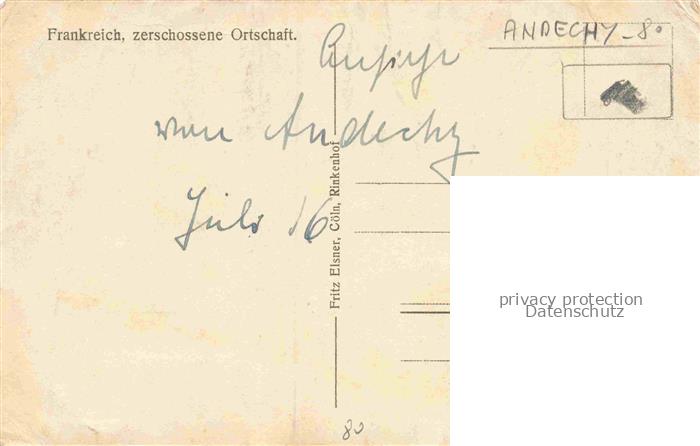 Frankreich, zerschossene Ortschaft.
ANDECHY - 80
Ansicht
von Andechy
Juli 16
Fritz Elsner, Cöln, Rinkenhof
privacy protection
Datenschutz
80